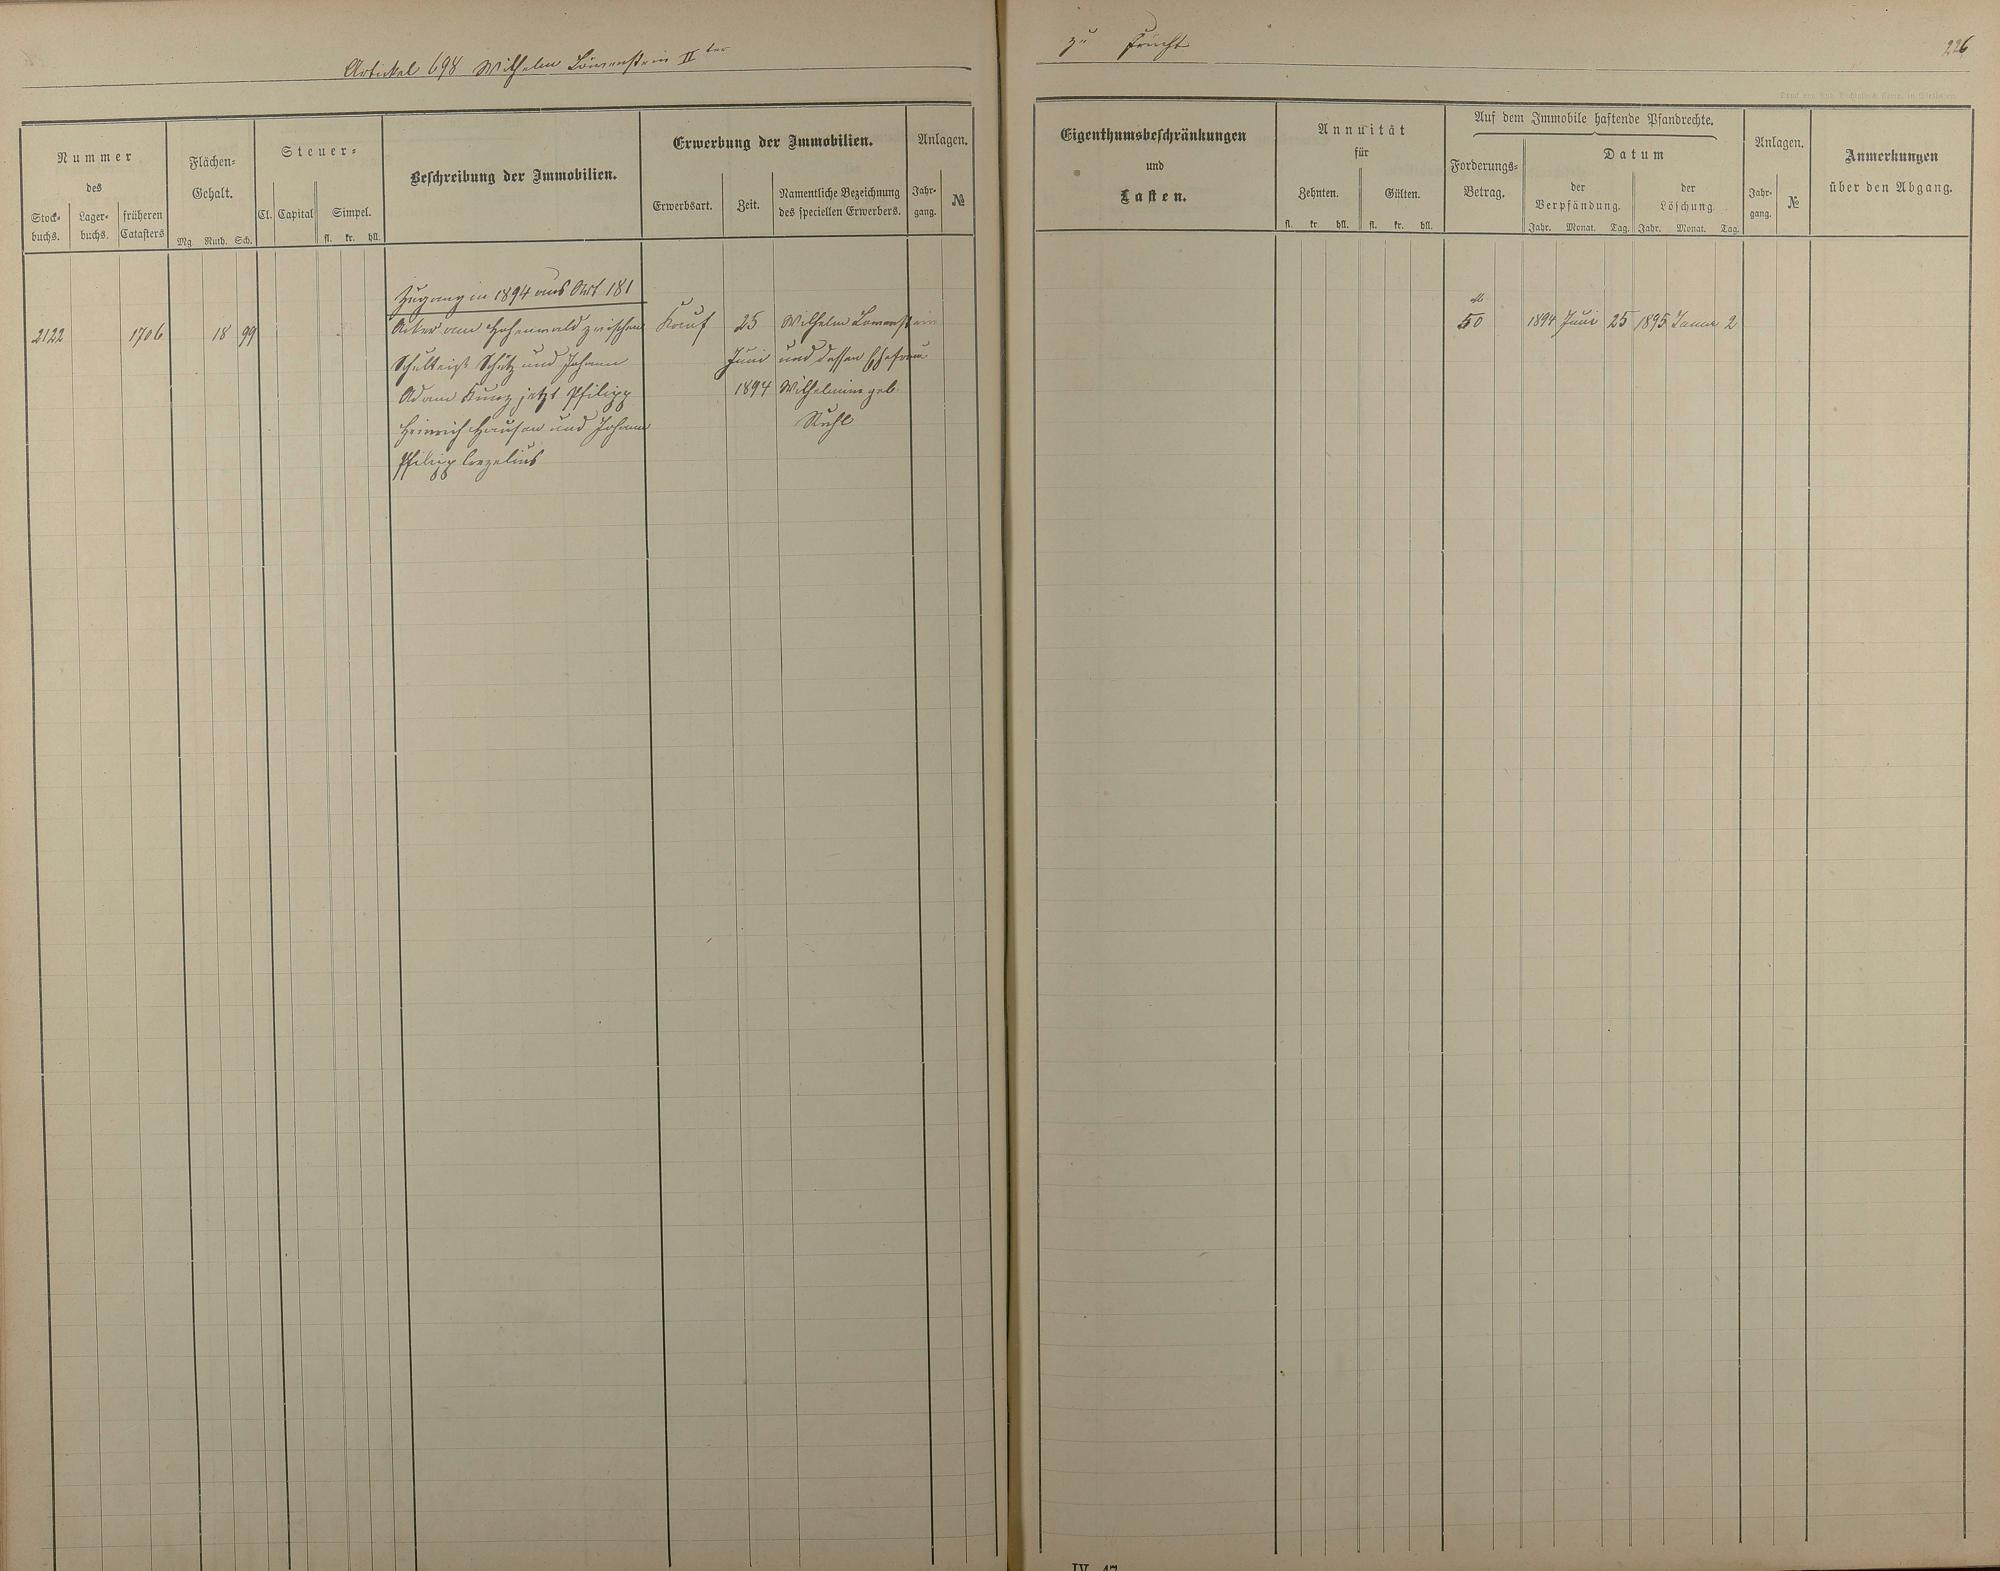 Artikel 698 Wilhelm Löwenstein II ter
zu Frücht
226
Nummer
des
Stock-
buchs.
Lager-
buchs.
früheren
Catasters
Flächen-
Gehalt.
Mg. Ruth. Sch.
Steuer-
Cl. Capital
Simpel.
fl. kr. hll.
Beschreibung der Immobilien.
Erwerbung der Immobilien.
Erwerbsart.
Zeit.
Namentliche Bezeichnung
des speciellen Erwerbers.
Anlagen.
Jahr-
gang.
№
Eigenthumsbeschränkungen
und
Lasten.
Annuität
für
Zehnten.
Gülten.
fl. kr hll. fl. kr. hll.
Auf dem Immobile haftende Pfandrechte.
Forderungs-
Betrag.
Datum
der
Verpfändung.
der
Löschung.
Jahr. Monat. Tag. Jahr. Monat. Tag.
Anlagen.
Jahr-
gang.
№
Anmerkungen
über den Abgang.
Zugang in 1894 aus Art 181
2122 1706 18 99 Acker am Hohenwald zwischen
Schulteiß Schütz und Johann
Adam Kunz jetzt Philipp
Heinrich Hausen und Johann
Philipp Corzelius
Kauf
25
Juni
1894
Wilhelm Lowenstein
und dessen Ehefrau
Wilhelmine geb.
Ruhl
M
50 1894 Juni 25 1895 Januar 2
IV. 47